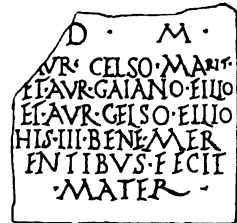 D · M ·
AVR · CELSO · MARIT
ET · AVR · GAIANO · FILIO
ET · AVR · CELSO · FILIO
HIS · III · BENE · MER
ENTIBVS · FECIT
· MATER ·